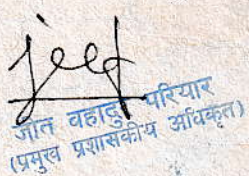 जीत वहादुर परियार
(प्रमुख प्रशासकीय अधिकृत)